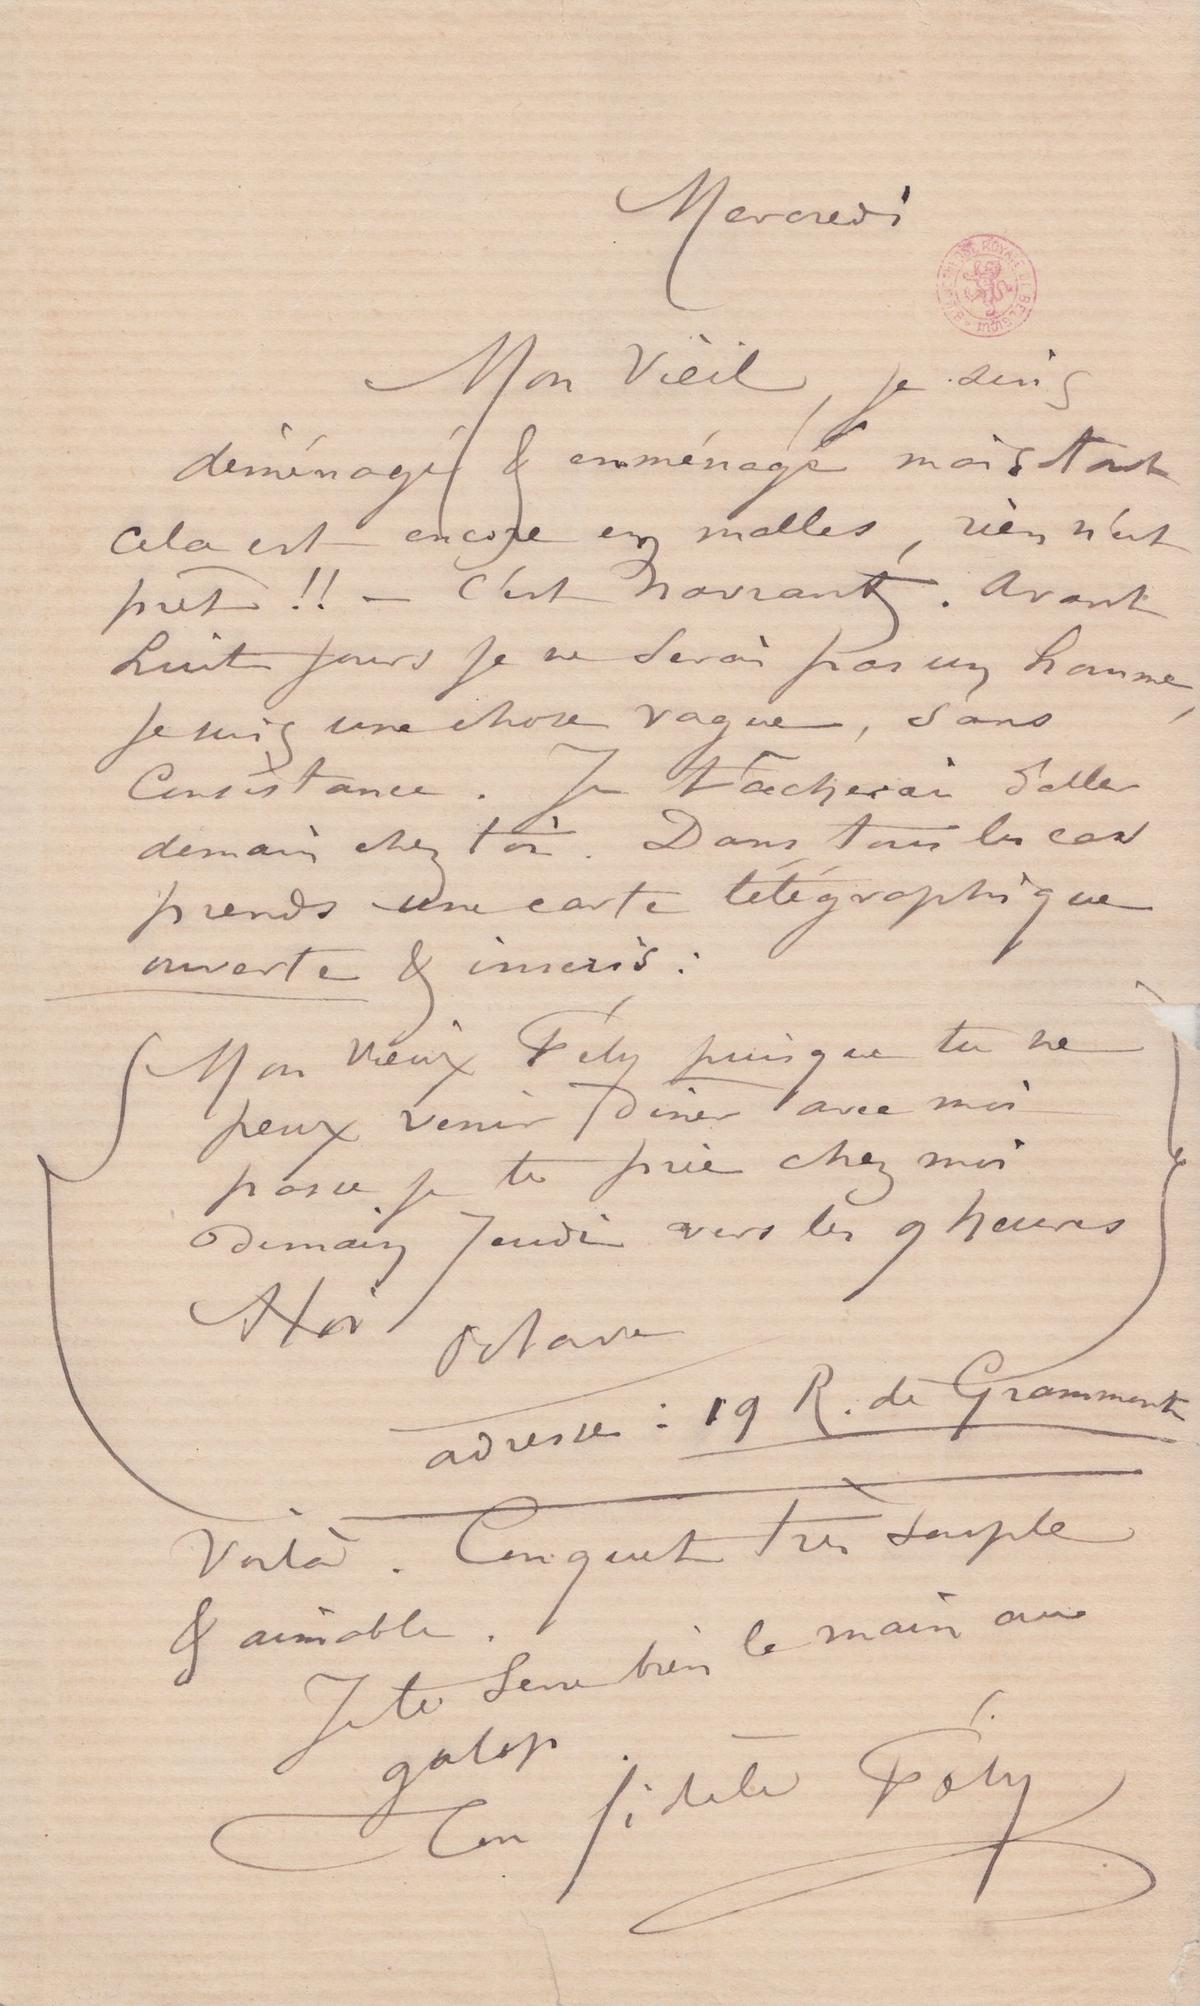 Mercredi
BIBLIOTHEQUE ROYALE DE BELGIQUE
Mon Vieil, je suis
déménagé & emménagé mais tout
cela est encore en malles, rien n'est
prêt !! — C'est navrant. Avant
huit jours je ne serai pas un homme,
je suis une chose vague, sans
Consistance. Je tâcherai d'aller
demain chez toi. Dans tous les cas
prends une carte télégraphique
ouverte & inscris :
Mon vieux Fély puisque tu ne
peux venir diner avec moi
passe je te prie chez moi
Demain Jeudi vers les 9 heures
A toi Octave
adresse : 19 R. de Grammont
Voilà. Conquet très souple
& aimable.
Je te serre bien la main au
galop.
Ton fidèle Fély